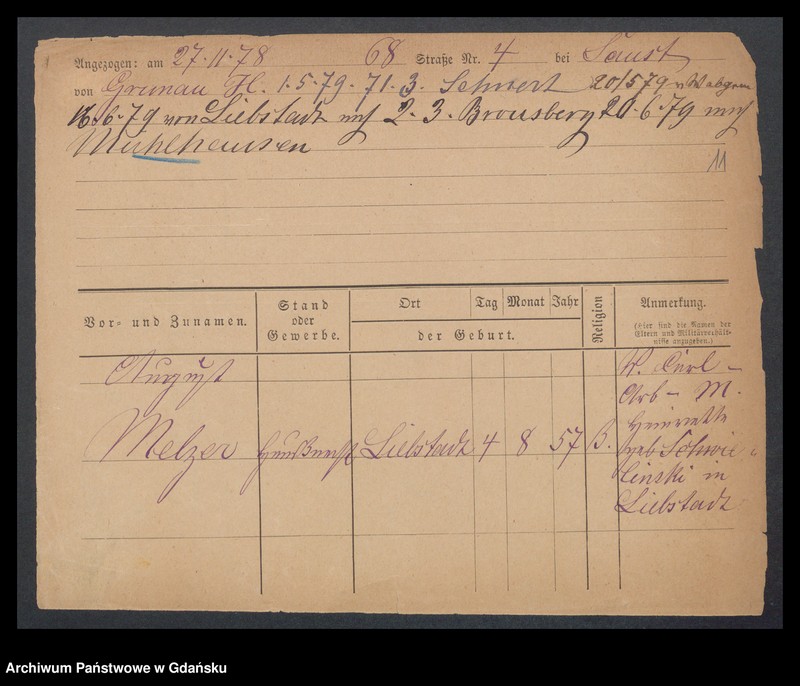 Angezogen: am 27.11.78 68 Straße Nr. 4 bei Saust
von Grunau H. 1.5.79. 71.3. Schwert 20/5 79 n Wabgrau
16.6.79 von Liebstadt nch 2.3. Brousberg 20.6.79 nach
Muhlhausen
11
Vor- und Zunamen. Stand oder Gewerbe. Ort Tag Monat Jahr der Geburt. Religion Anmerkung.
(Hier sind die Namen der Eltern und Militärverhältnisse anzugeben.)
August
Melzer Hausknecht Liebstadt 4 8 57 B.
V. Carl -
Arb - M.
Henriette
geb Schwie
linski in
Liebstadt
Archiwum Państwowe w Gdańsku